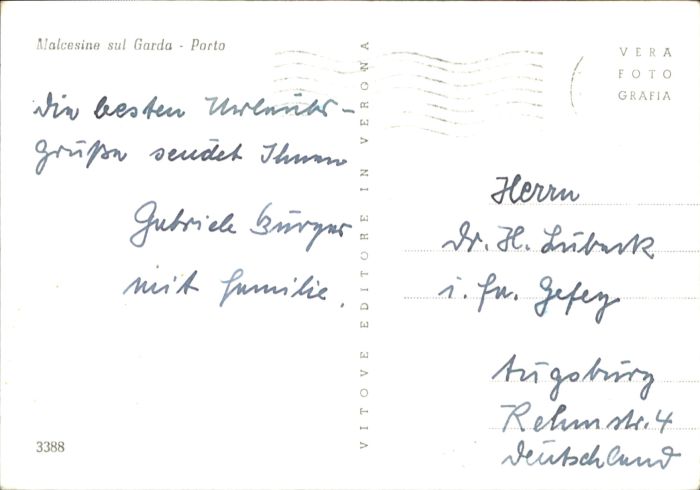 Malcesine sul Garda - Porto
VERA
FOTO
GRAFIA
Die besten Urlaubs-
grüße sendet Ihnen
Gabriele Burger
mit Familie.
VITOVE EDITORE IN VERONA
Herrn
Dr. H. Lubeck
i. Fa. Gefey
Augsburg
Rehmstr. 4
Deutschland
3388